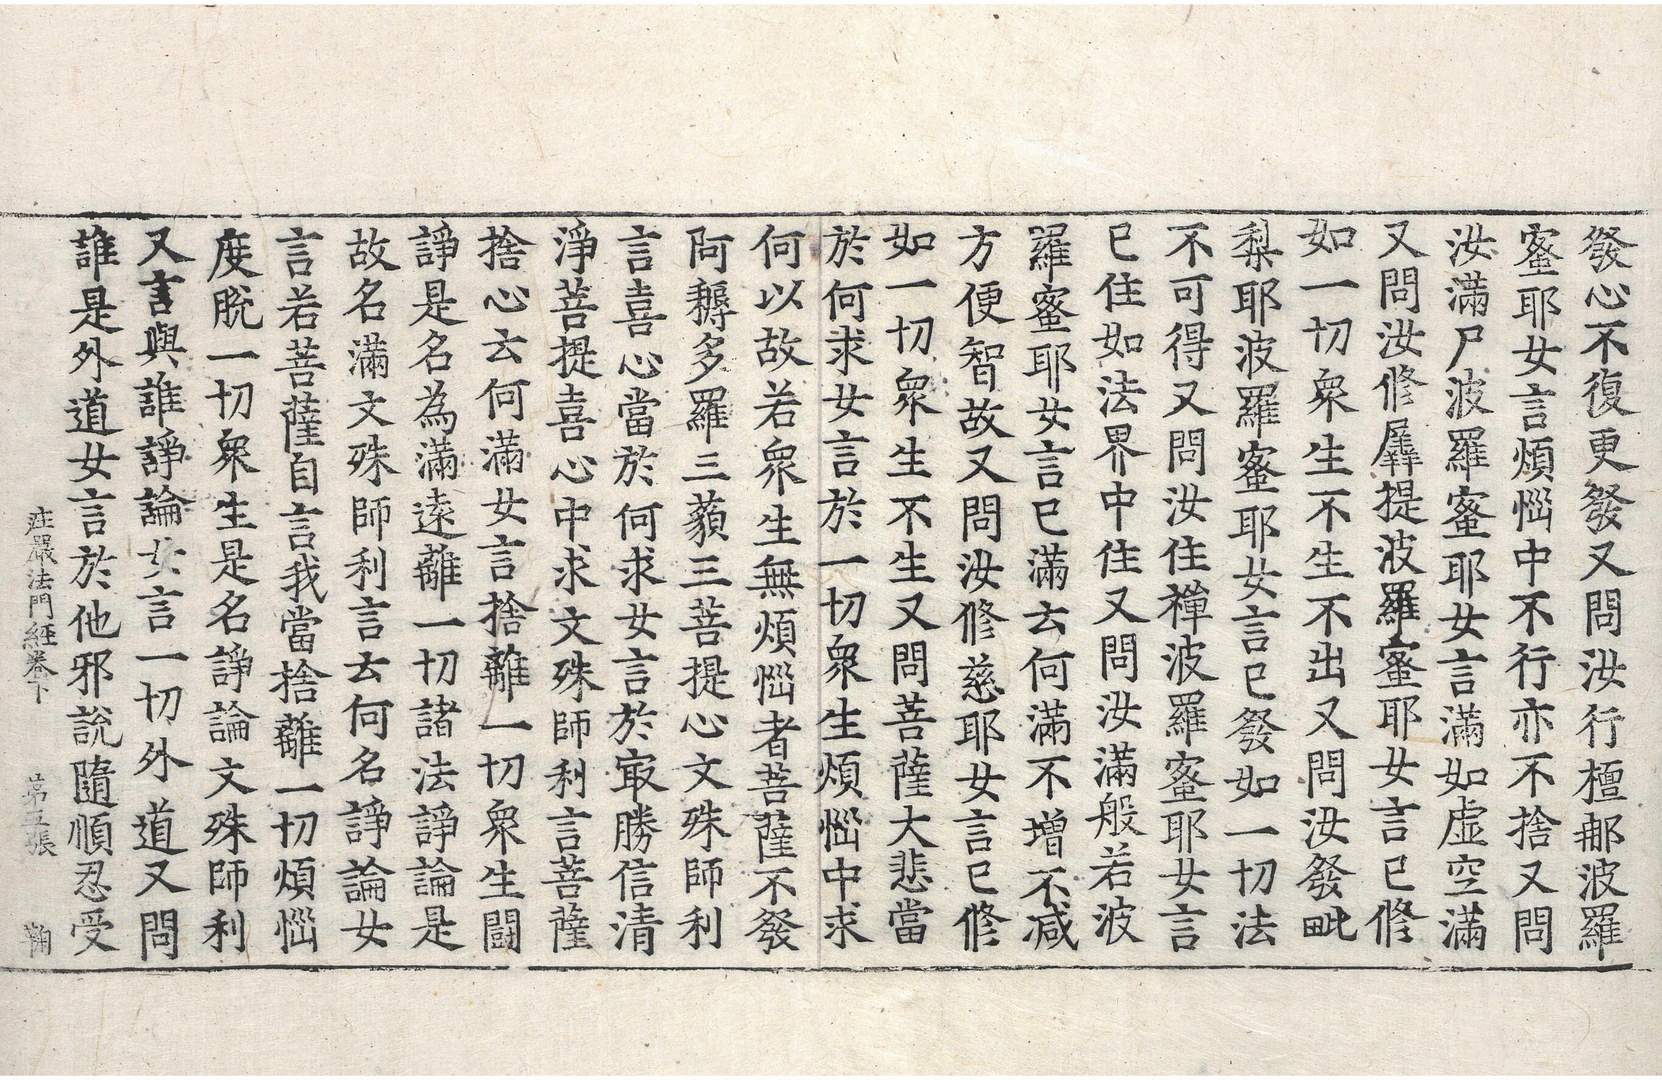 發心不復更發又問汝行檀那波羅
蜜耶女言煩惱中不行亦不捨又問
汝滿尸波羅蜜耶女言滿如虛空滿
又問汝修羼提波羅蜜耶女言已修
如一切衆生不生不出又問汝發毗
梨耶波羅蜜耶女言已發如一切法
不可得又問汝住禪波羅蜜耶女言
已住如法界中住又問汝滿般若波
羅蜜耶女言已滿云何滿不增不減
方便智故又問汝修慈耶女言已修
如一切衆生不生又問菩薩大悲當
於何求女言於一切衆生煩惱中求
何以故若衆生無煩惱者菩薩不發
阿耨多羅三藐三菩提心文殊師利
言喜心當於何求女言於㝡勝信清
淨菩提喜心中求文殊師利言菩薩
捨心云何滿女言捨離一切衆生鬪
諍是名為滿遠離一切諸法諍論是
故名滿文殊師利言云何名諍論女
言若菩薩自言我當捨離一切煩惱
度脫一切衆生是名諍論文殊師利
又言與誰諍論女言一切外道又問
誰是外道女言於他邪說隨順忍受
庄嚴法門經卷下 第五張 鞠